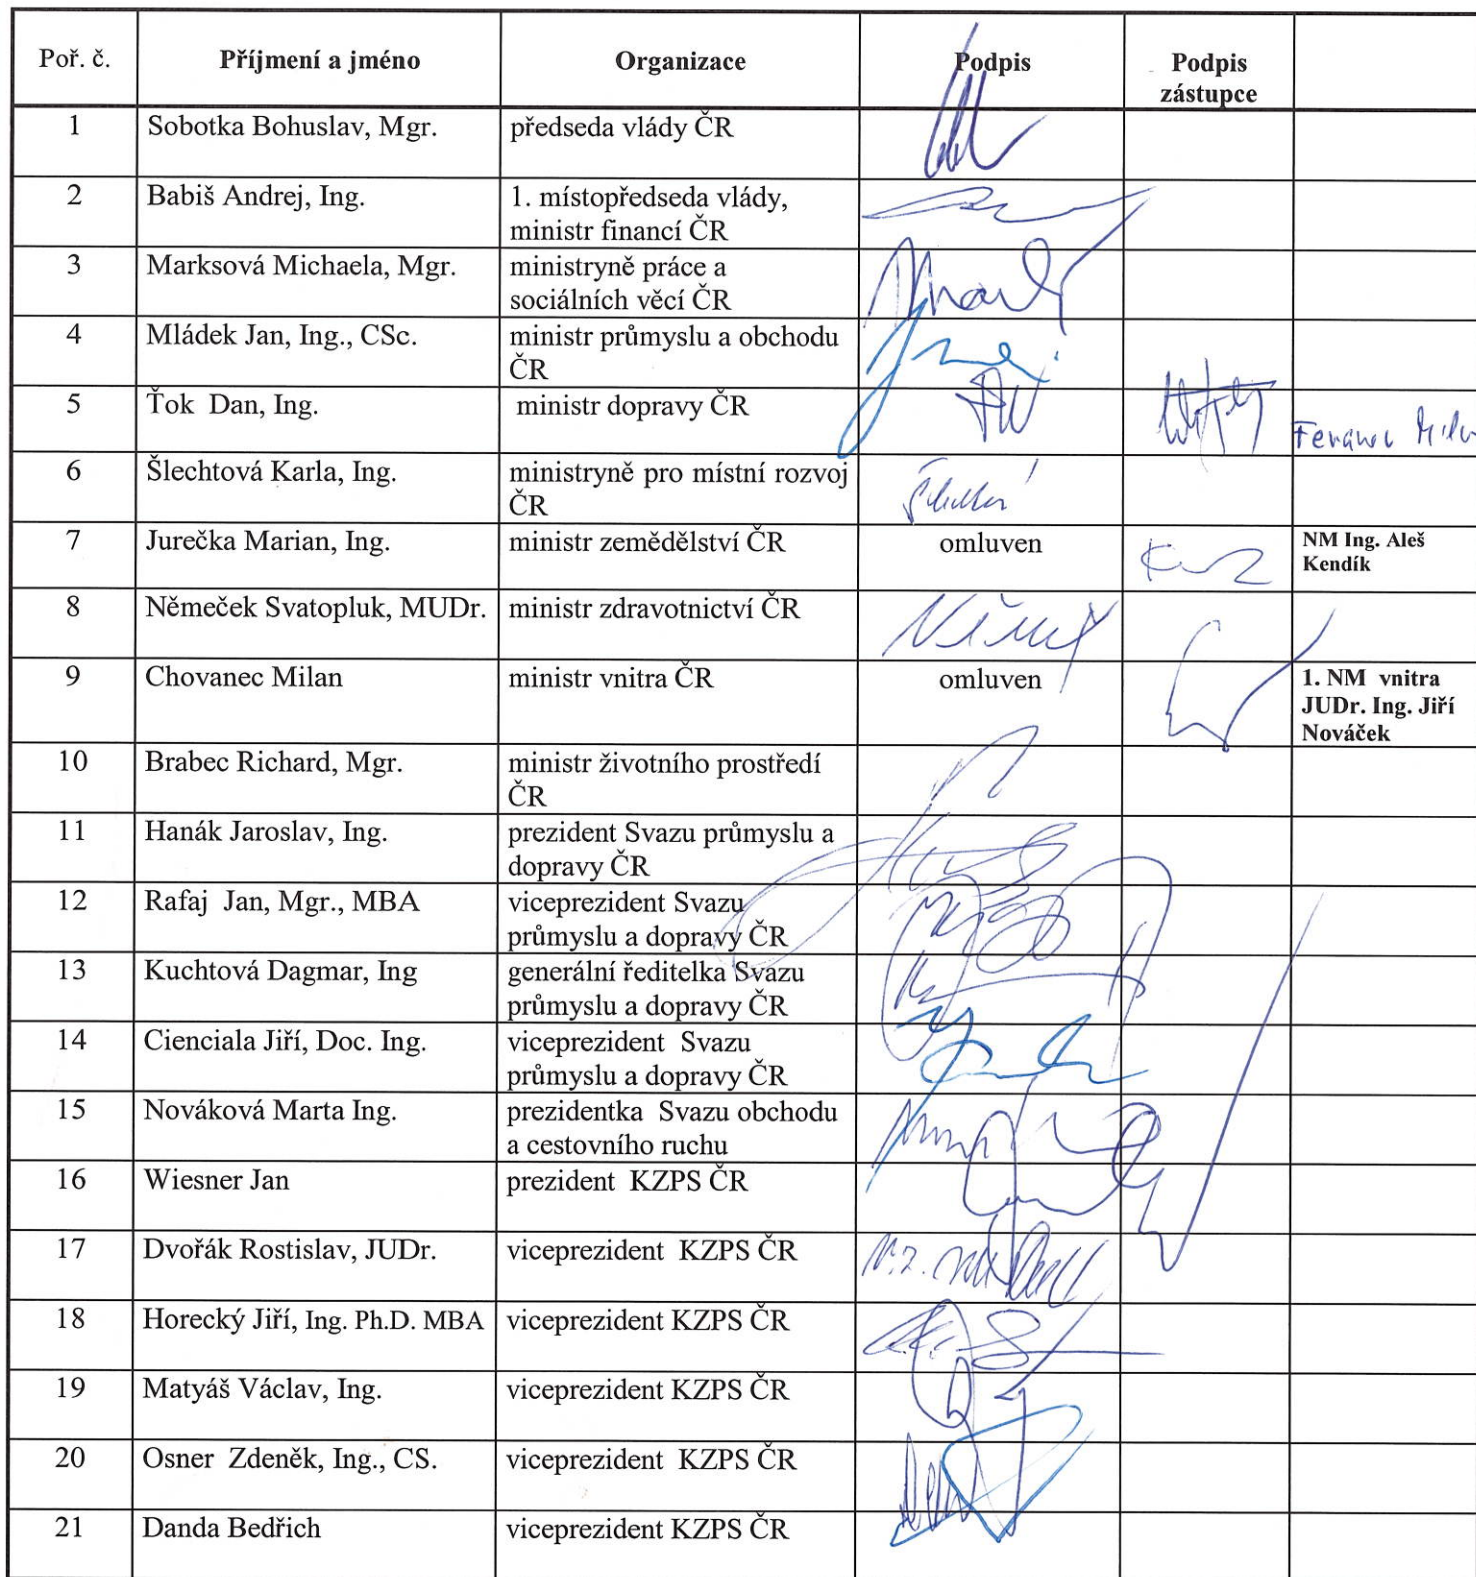 Poř. č. Příjmení a jméno Organizace Podpis Podpis
zástupce
1 Sobotka Bohuslav, Mgr. předseda vlády ČR
2 Babiš Andrej, Ing. 1. místopředseda vlády,
ministr financí ČR
3 Marksová Michaela, Mgr. ministryně práce a
sociálních věcí ČR
4 Mládek Jan, Ing., CSc. ministr průmyslu a obchodu
ČR
5 Ťok Dan, Ing. ministr dopravy ČR
6 Šlechtová Karla, Ing. ministryně pro místní rozvoj
ČR
7 Jurečka Marian, Ing. ministr zemědělství ČR omluven NM Ing. Aleš
Kendík
8 Němeček Svatopluk, MUDr. ministr zdravotnictví ČR
9 Chovanec Milan ministr vnitra ČR omluven 1. NM vnitra
JUDr. Ing. Jiří
Nováček
10 Brabec Richard, Mgr. ministr životního prostředí
ČR
11 Hanák Jaroslav, Ing. prezident Svazu průmyslu a
dopravy ČR
12 Rafaj Jan, Mgr., MBA viceprezident Svazu
průmyslu a dopravy ČR
13 Kuchtová Dagmar, Ing generální ředitelka Svazu
průmyslu a dopravy ČR
14 Cienciala Jiří, Doc. Ing. viceprezident Svazu
průmyslu a dopravy ČR
15 Nováková Marta Ing. prezidentka Svazu obchodu
a cestovního ruchu
16 Wiesner Jan prezident KZPS ČR
17 Dvořák Rostislav, JUDr. viceprezident KZPS ČR
18 Horecký Jiří, Ing. Ph.D. MBA viceprezident KZPS ČR
19 Matyáš Václav, Ing. viceprezident KZPS ČR
20 Osner Zdeněk, Ing., CS. viceprezident KZPS ČR
21 Danda Bedřich viceprezident KZPS ČR